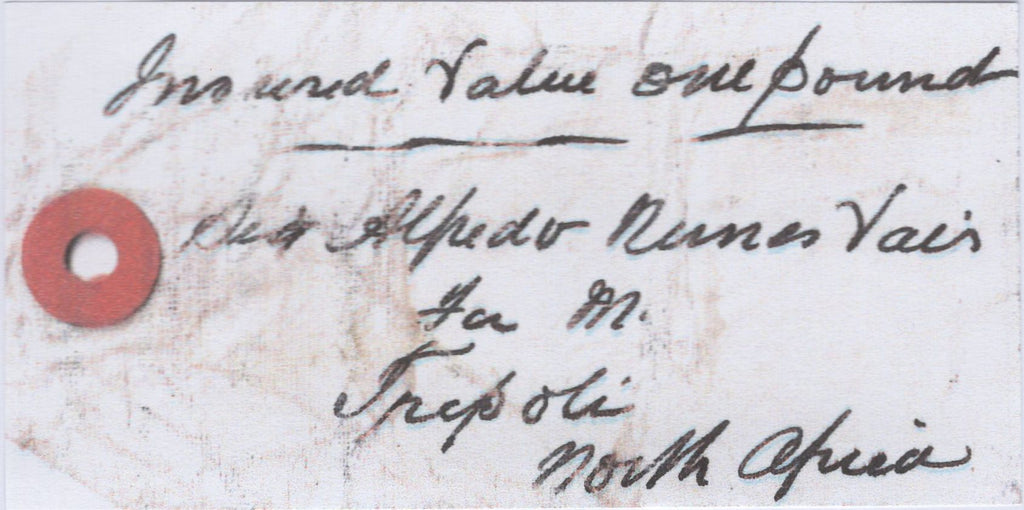 Insured Value one pound
Alfredo Nunes Vais
For M.
Tripoli
North Africa